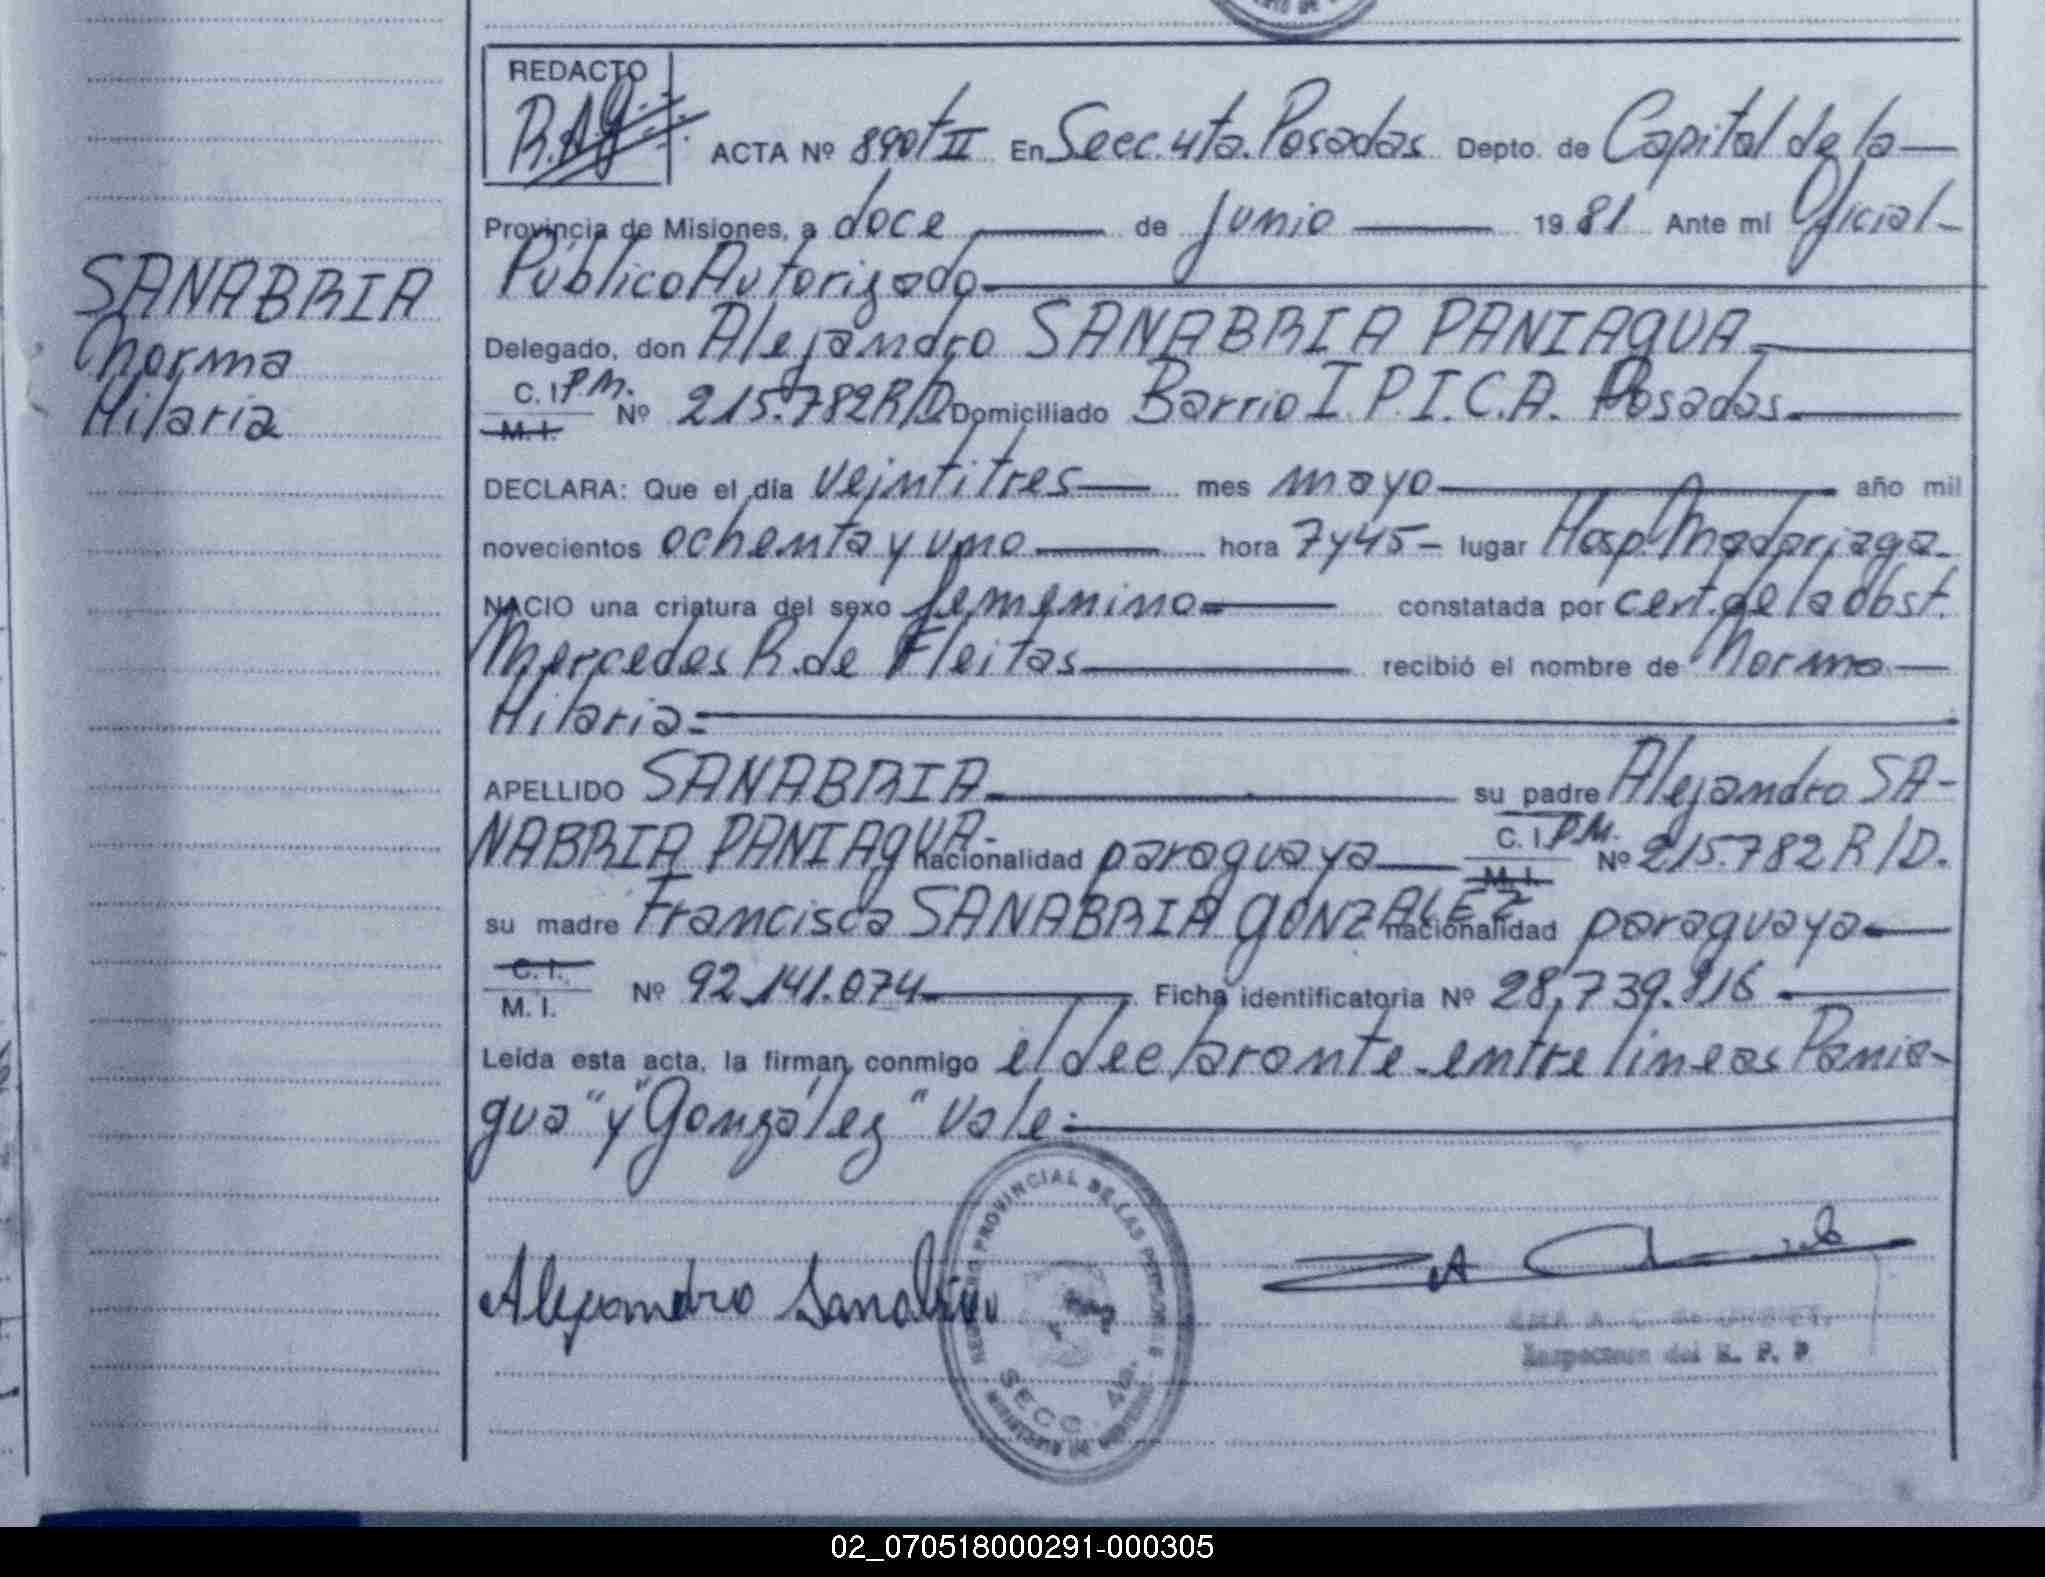 REDACTO
R.A.G.
ACTA Nº 890tII En Secc. 4ta. Posadas Depto. de Capital de la
Provincia de Misiones, a doce de junio 1981 Ante mi Oficial
Público Autorizado
SANABRIA
Norma
Hilaria
Delegado, don Alejandro SANABRIA PANIAGUA
C. I. P.M.
M. I.
Nº 215.782R/D. Domiciliado Barrio I.P.I.C.A. Posadas.
DECLARA: Que el día veintitres mes mayo año mil
novecientos ochenta y uno hora 7y45 lugar Hosp. Madariaga
NACIO una criatura del sexo femenino constatada por cert. de la obst.
Mercedes R. de Fleitas recibió el nombre de Norma
Hilaria
APELLIDO SANABRIA su padre Alejandro SA-
NABRIA PANIAGUA nacionalidad paraguaya C. I. P.M. M. I. Nº 215.782 R/D.
su madre Francisca SANABRIA GONZALEZ nacionalidad paraguaya
C. I.
M. I.
Nº 92.141.074 Ficha identificatoria Nº 28.739.816
Leída esta acta, la firman conmigo el declarante entre lineas Pania-
gua" y "González" Vale:
Alejandro Sanabria
REGISTRO PROVINCIAL DE LAS PERSONAS
SECC. 4ta.
Inspectora del R. P. P
02_070518000291-000305